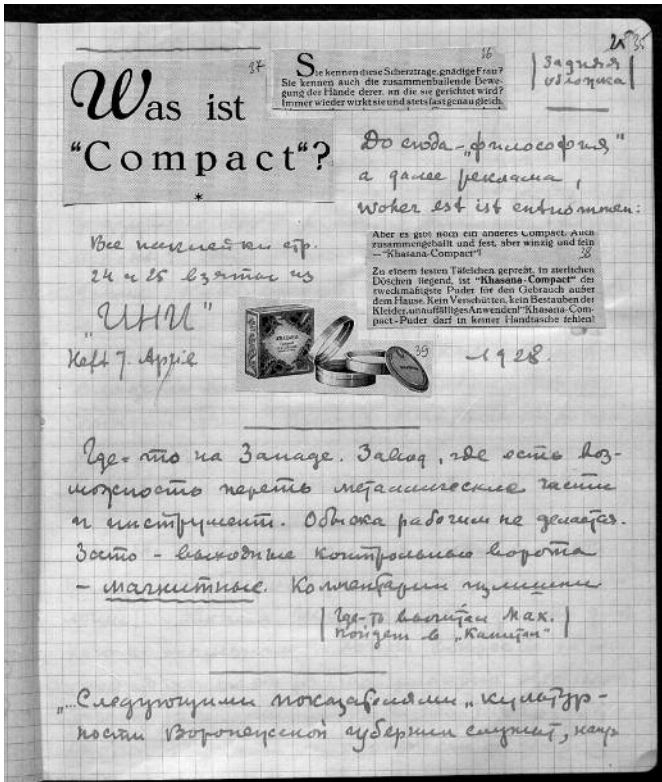 25 35
37
Was ist
“Compact“?
*
36
Sie kennen diese Scherzfrage, gnädige Frau?
Sie kennen auch die zusammenballende Bewe-
gung der Hände derer, an die sie gerichtet wird?
Immer wieder wirkt sie und stets fast genau gleich.
Задняя
обложка
До сюда - „философия“
а далее реклама,
woher est ist entnommen:
Все наклейки стр.
24 и 25 взяты из
„УНИ“
Heft 7. April
1928.
Aber es gibt noch ein anderes Compact. Auch
zusammengeballt und fest, aber winzig und fein
— “Khasana-Compact“!
38
Zu einem festen Täfelchen gepreßt, in zierlichen
Döschen liegend, ist “Khasana-Compact“ der
zweckmäßigste Puder für den Gebrauch außer
dem Hause. Kein Verschütten, kein Bestauben der
Kleider, unauffälliges Anwenden! “Khasana-Com-
pact-Puder darf in keiner Handtasche fehlen!
39
Где-то на Западе. Завод, где есть воз-
можность переть металлические части
и инструмент. Обыска рабочим не делается.
Зато - выходные контрольные ворота
- магнитные. Комментарии излишни
Где-то вычитал Мак.
Пойдет в „Капитал“
„...Следующими показателями „культур-
ности Воронежской губернии служат, напр